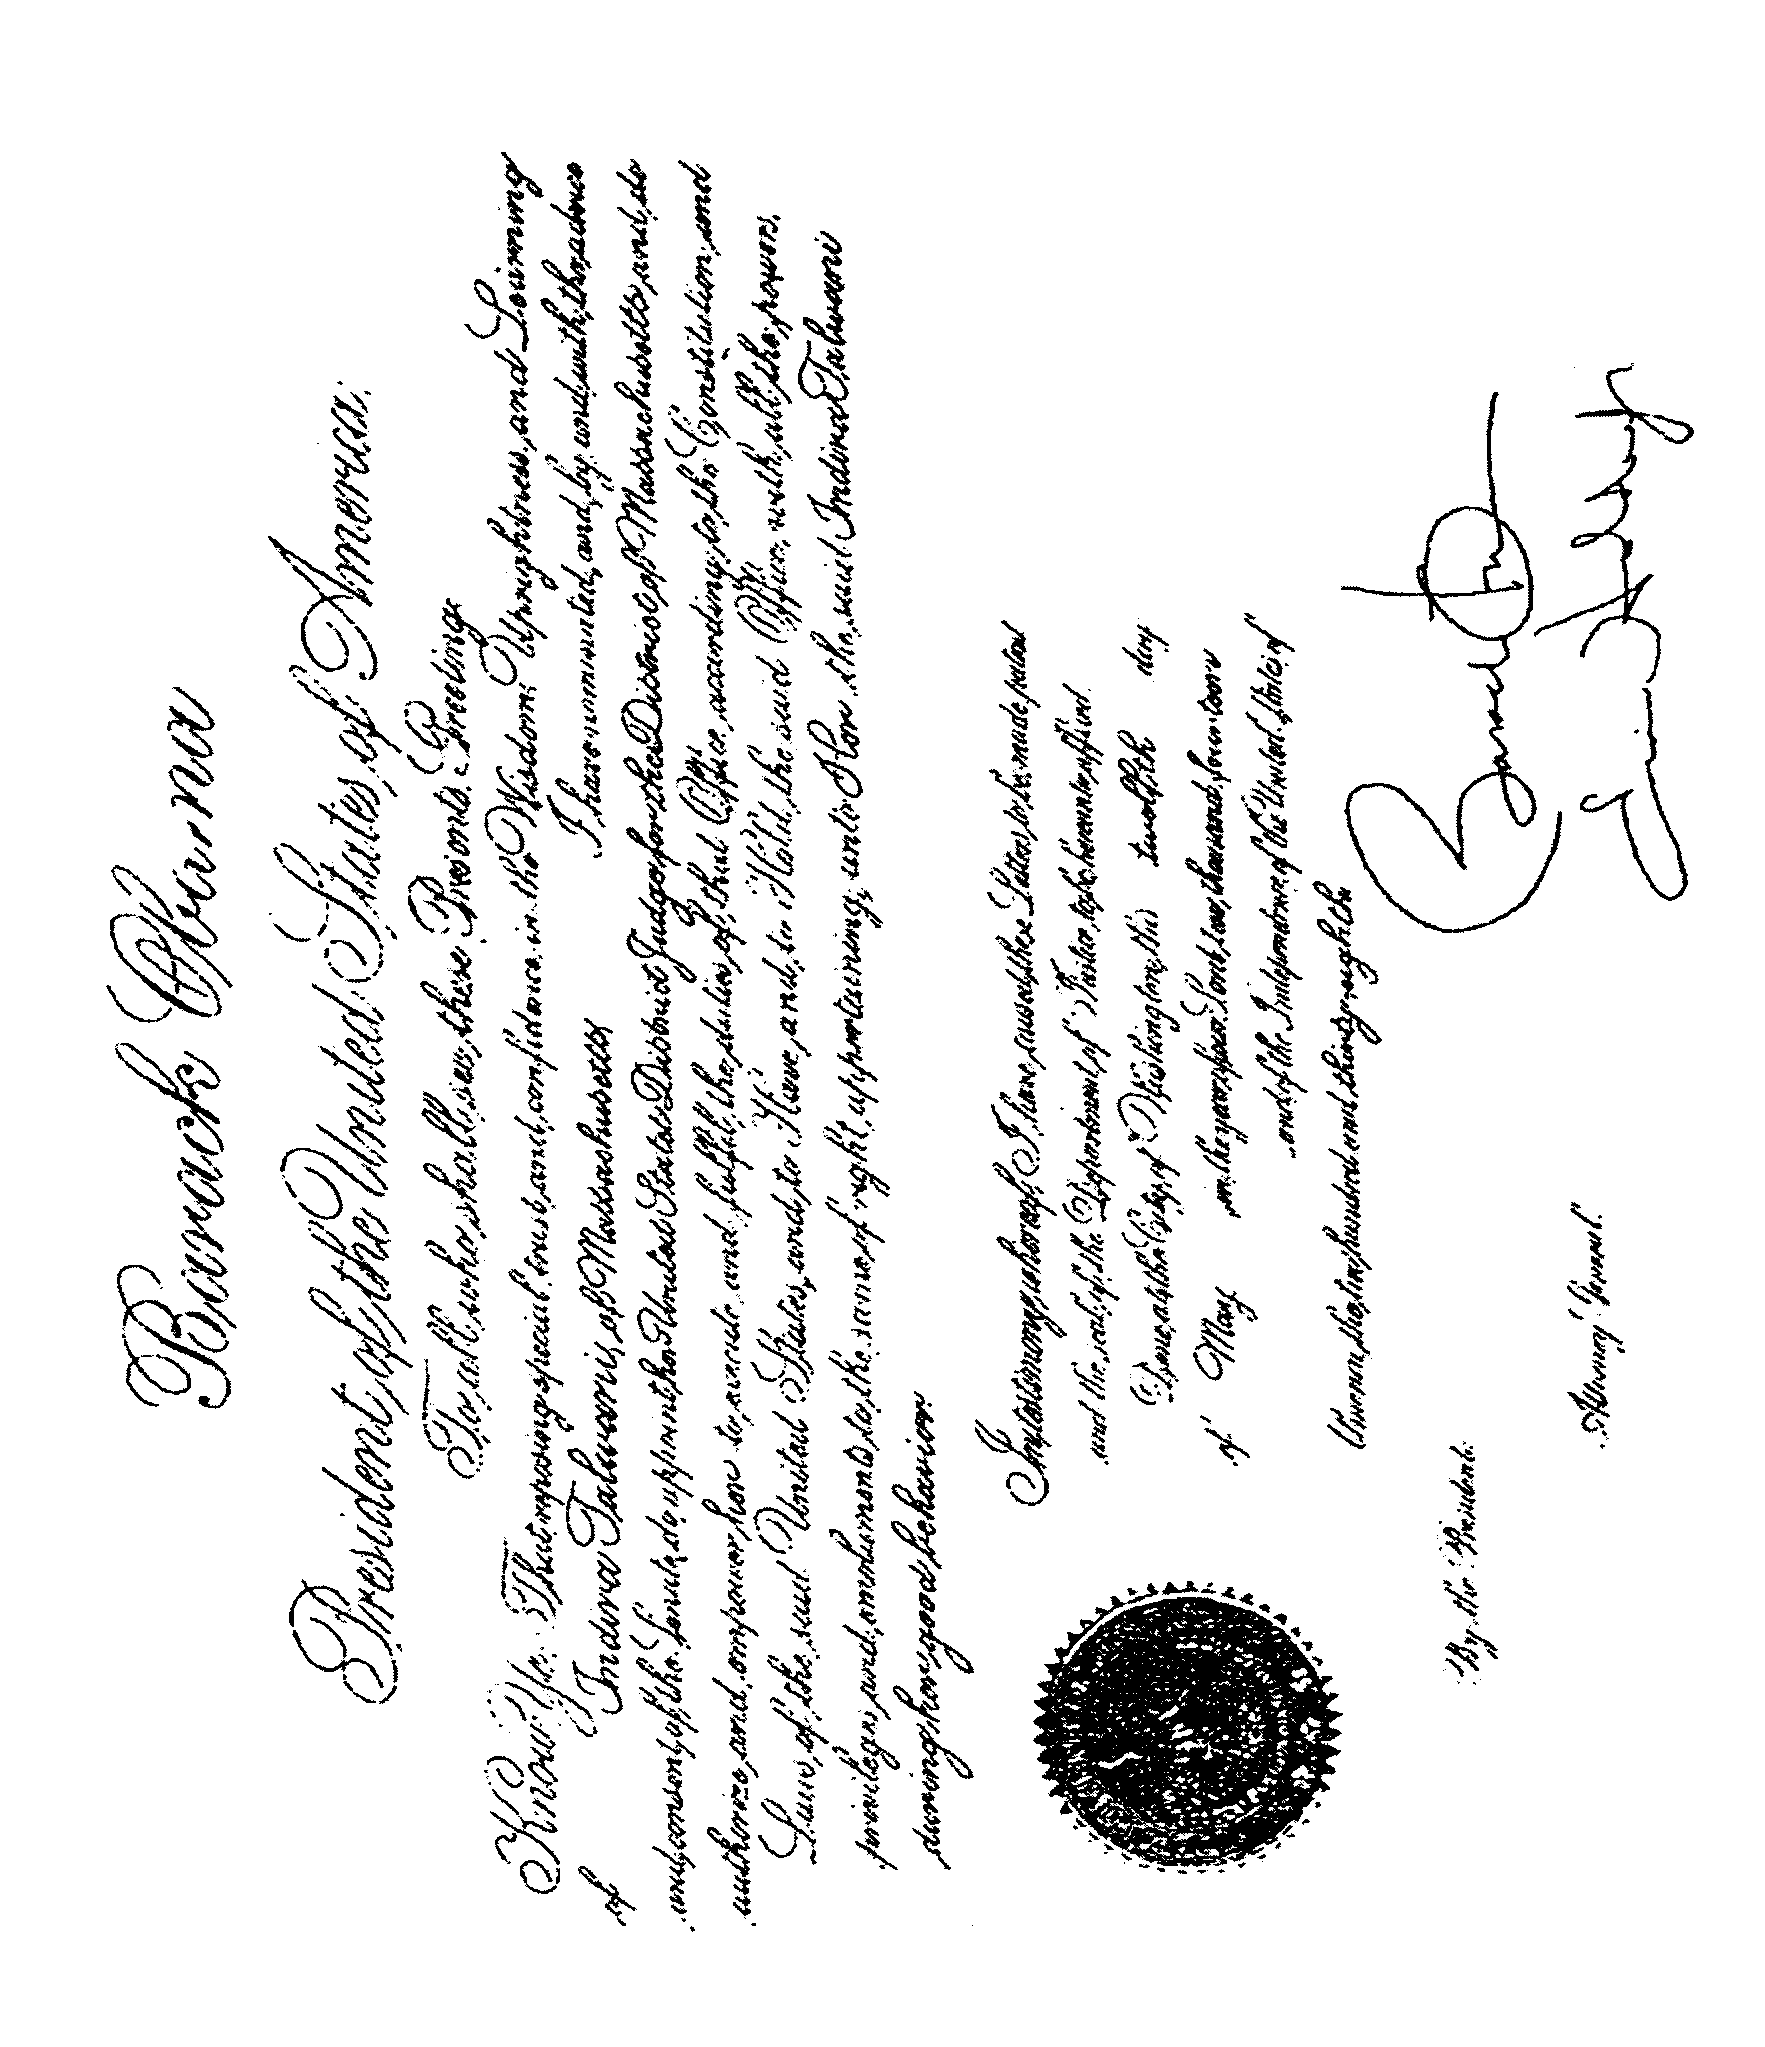 Barack Obama
President of the United States of America.
To all who shall see these Presents, Greeting:
Know Ye: That reposing special trust and confidence in the Wisdom, Uprightness, and Learning
of Indira Talwani, of Massachusetts I have nominated, and, by and with the advice
and consent of the Senate, do appoint her United States District Judge for the District of Massachusetts, and do
authorize and empower her to execute and fulfil the duties of that Office according to the Constitution and
Laws of the said United States, and to Have and to Hold the said Office, with all the powers,
privileges, and emoluments to the same of right appertaining, unto Her, the said Indira Talwani
during her good behavior.
In testimony whereof, I have caused these Letters to be made patent
and the seal of the Department of Justice to be hereunto affixed.
Done at the City of Washington, this twelfth day
of May in the year of our Lord two thousand fourteen
and of the Independence of the United States of
America the two hundred and thirty-eighth.
By the President:
Attorney General.